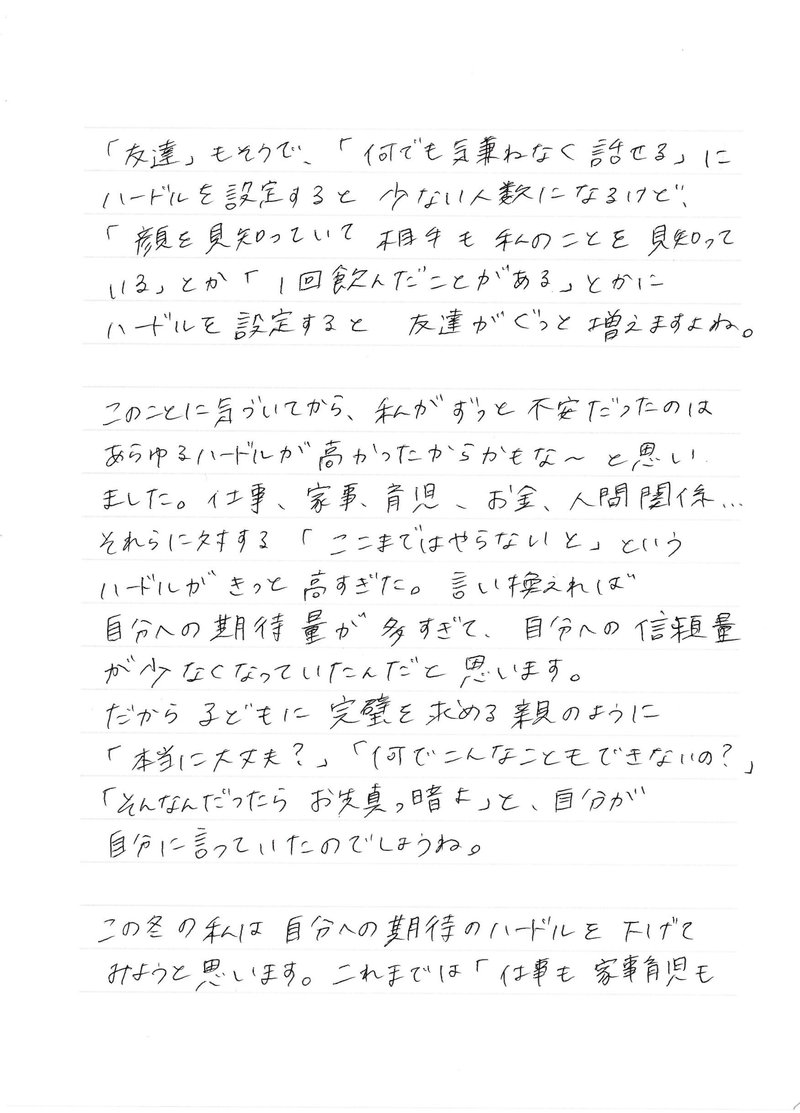 「友達」もそうで、「何でも気兼ねなく話せる」に
ハードルを設定すると少ない人数になるけど、
「顔を見知っていて相手も私のことを見知って
いる」とか「1回飲んだことがある」とかに
ハードルを設定すると 友達がぐっと増えますよね。
このことに気づいてから、私がずっと不安だったのは
あらゆるハードルが高かったからかもな〜と思い
ました。仕事、家事、育児、お金、人間関係…
それらに対する「ここまではやらないと」という
ハードルがきっと高すぎた。言い換えれば
自分への期待量が多すぎて、自分への信頼量
が少なくなっていたんだと思います。
だから子どもに完璧を求める親のように
「本当に大丈夫?」「何でこんなこともできないの?」
「そんなんだったらお先真っ暗よ」と、自分が
自分に言っていたのでしょうね。
この冬の私は自分への期待のハードルを下げて
みようと思います。これまでは「仕事も家事育児も